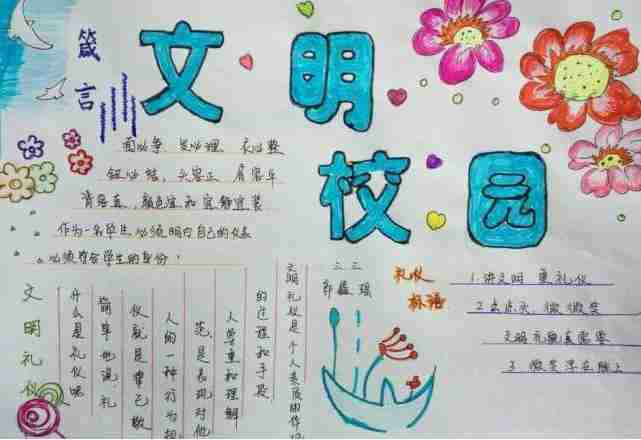 文明
校园
箴言
面必净 发必理 衣必整
钮必结 头容正 肩容平
背容直 颜色宜和宜静宜装
作为一名学生必须明白自己的仪表
必须符合学生的身份
文明礼仪
什么是礼仪呢
简单地说 礼
仪就是律己敬
人的一种行为规
范 是表现对他
人尊重和理解
的过程和手段
文明礼仪是个人素质
三三
郭 瑶
礼仪
标语
1.讲文明 重礼仪
2.点点头 微微笑
文明礼貌真需要
3 微笑浮在脸上